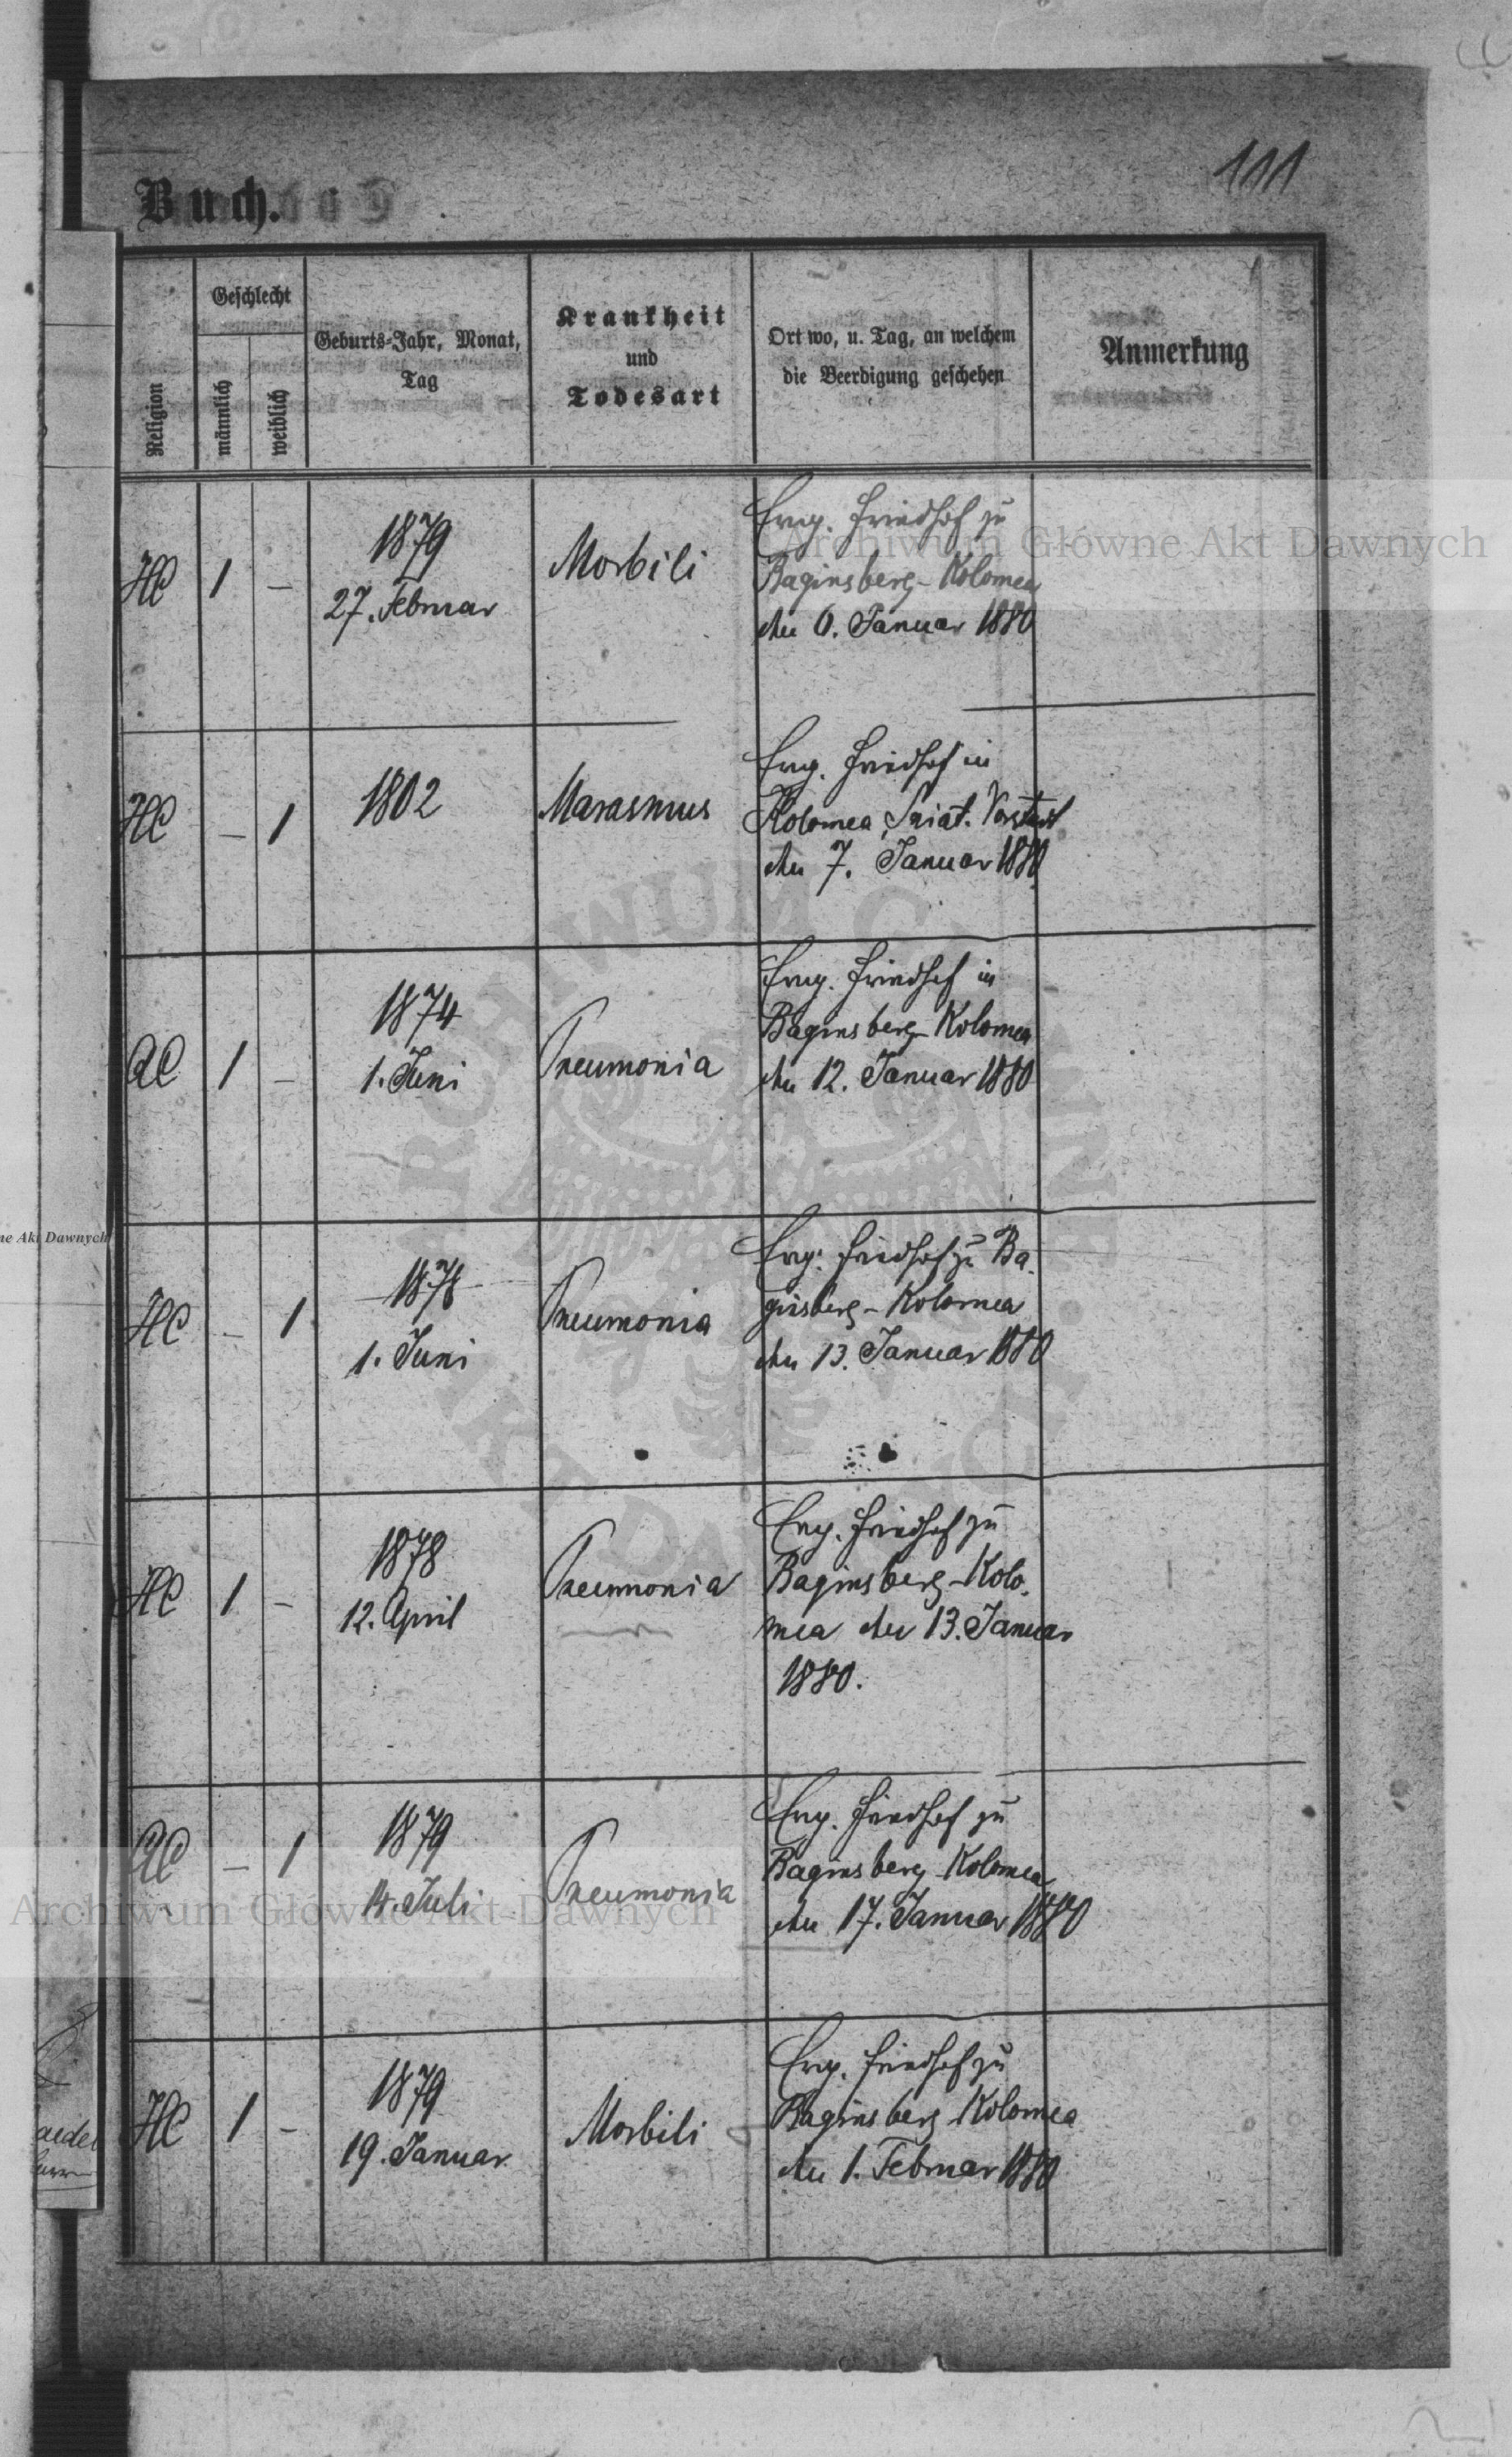 111
Buch.
Religion
Geschlecht
männlich
weiblich
Geburts-Jahr, Monat,
Tag
Krankheit
und
Todesart
Ort wo, u. Tag, an welchem
die Beerdigung geschehen
Anmerkung
HC
1
–
1879
27. Februar
Morbili
Evg. Friedhof zu
Baginsberg-Kolomea
den 6. Januar 1880
Archiwum Główne Akt Dawnych
HC
–
1
1802
Marasmus
Evg. Friedhof in
Kolomea, Vorstadt
den 7. Januar 1880
AC
1
–
1874
1. Juni
Pneumonia
Evg. Friedhof in
Baginsberg-Kolomea
den 12. Januar 1880
ne Akt Dawnych
HC
–
1
1878
1. Juni
Pneumonia
Evg. Friedhof zu Ba-
ginsberg-Kolomea
den 13. Januar 1880
HC
1
–
1878
12. April
Pneumonia
Evg. Friedhof zu
Baginsberg-Kolo-
mea den 13. Januar
1880.
AC
–
1
1879
4. Juli
Pneumonia
Evg. Friedhof zu
Baginsberg-Kolomea
den 17. Januar 1880
Archiwum Główne Akt Dawnych
HC
1
–
1879
19. Januar
Morbili
Evg. Friedhof zu
Baginsberg-Kolomea
den 1. Februar 1880
ARCHIWUM GŁÓWNE AKT DAWNYCH